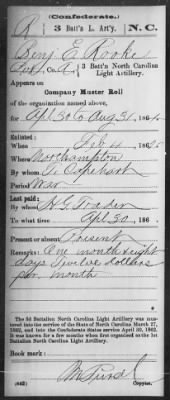 (Confederate.)
R 3 Batt'n L. Art'y. N.C.
Benj E. Rooke
Co. A, 3 Batt'n North Carolina
Light Artillery.
Appears on
Company Muster Roll
of the organization named above,
for Apl 30 to Aug 31, 186
Enlisted:
When Feb 186
Where Northampton
By
Period War
Last paid:
By H. G.
To what time Apl 30, 186
Present or absent Present
Remarks: One month & eight
days Twelve dollars
per month
The 3d Battalion North Carolina Light Artillery was mustered
into the service of the State of North Carolina March 27,
1862, and into the Confederate States service April 30, 1862.
It was known for a few months when first organized as the 1st
Battalion North Carolina Light Artillery.
Book mark:
(642) Copyist.